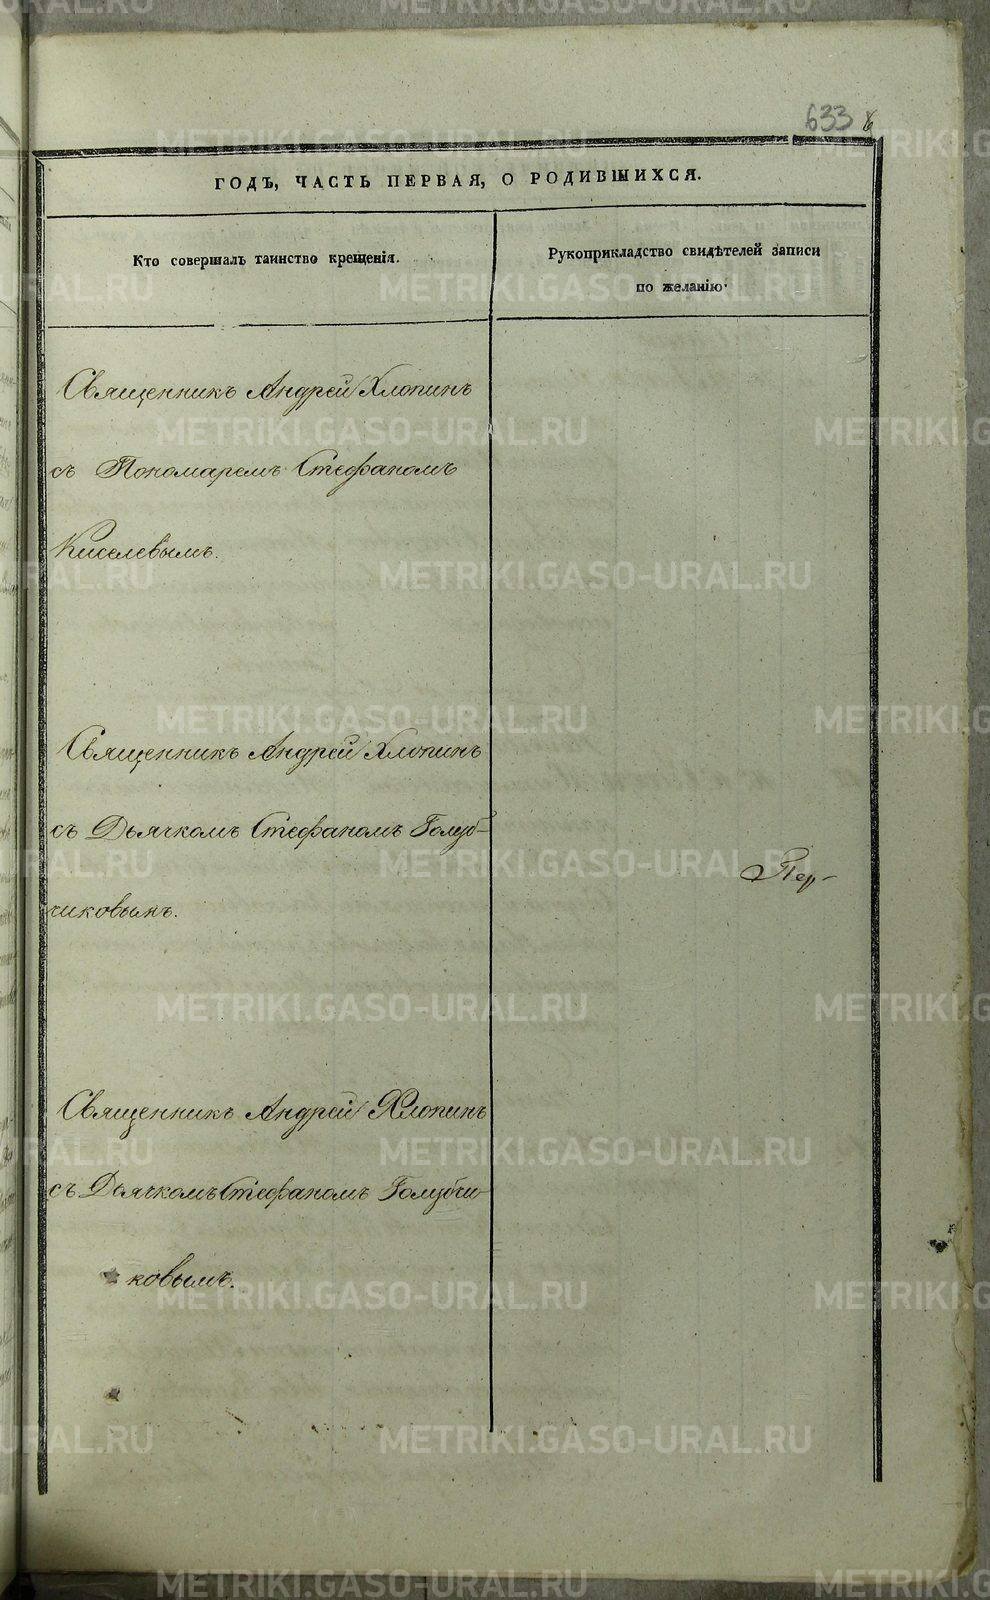 633 6
ГОДЪ, ЧАСТЬ ПЕРВАЯ, О РОДИВШИХСЯ.
Кто совершалъ таинство крещенія.
Рукоприкладство свидѣтелей записи
по желанію.
Священникъ Андрей Хлопинъ
съ Пономаремъ Стефаномъ
Киселевымъ.
Священникъ Андрей Хлопинъ
съ Дьячкомъ Стефаномъ Голуб-
чиковымъ.
Пер-
Священникъ Андрей Хлопинъ
съ Дьячкомъ Стефаномъ Голубчи-
ковымъ.
METRIKI.GASO-URAL.RU